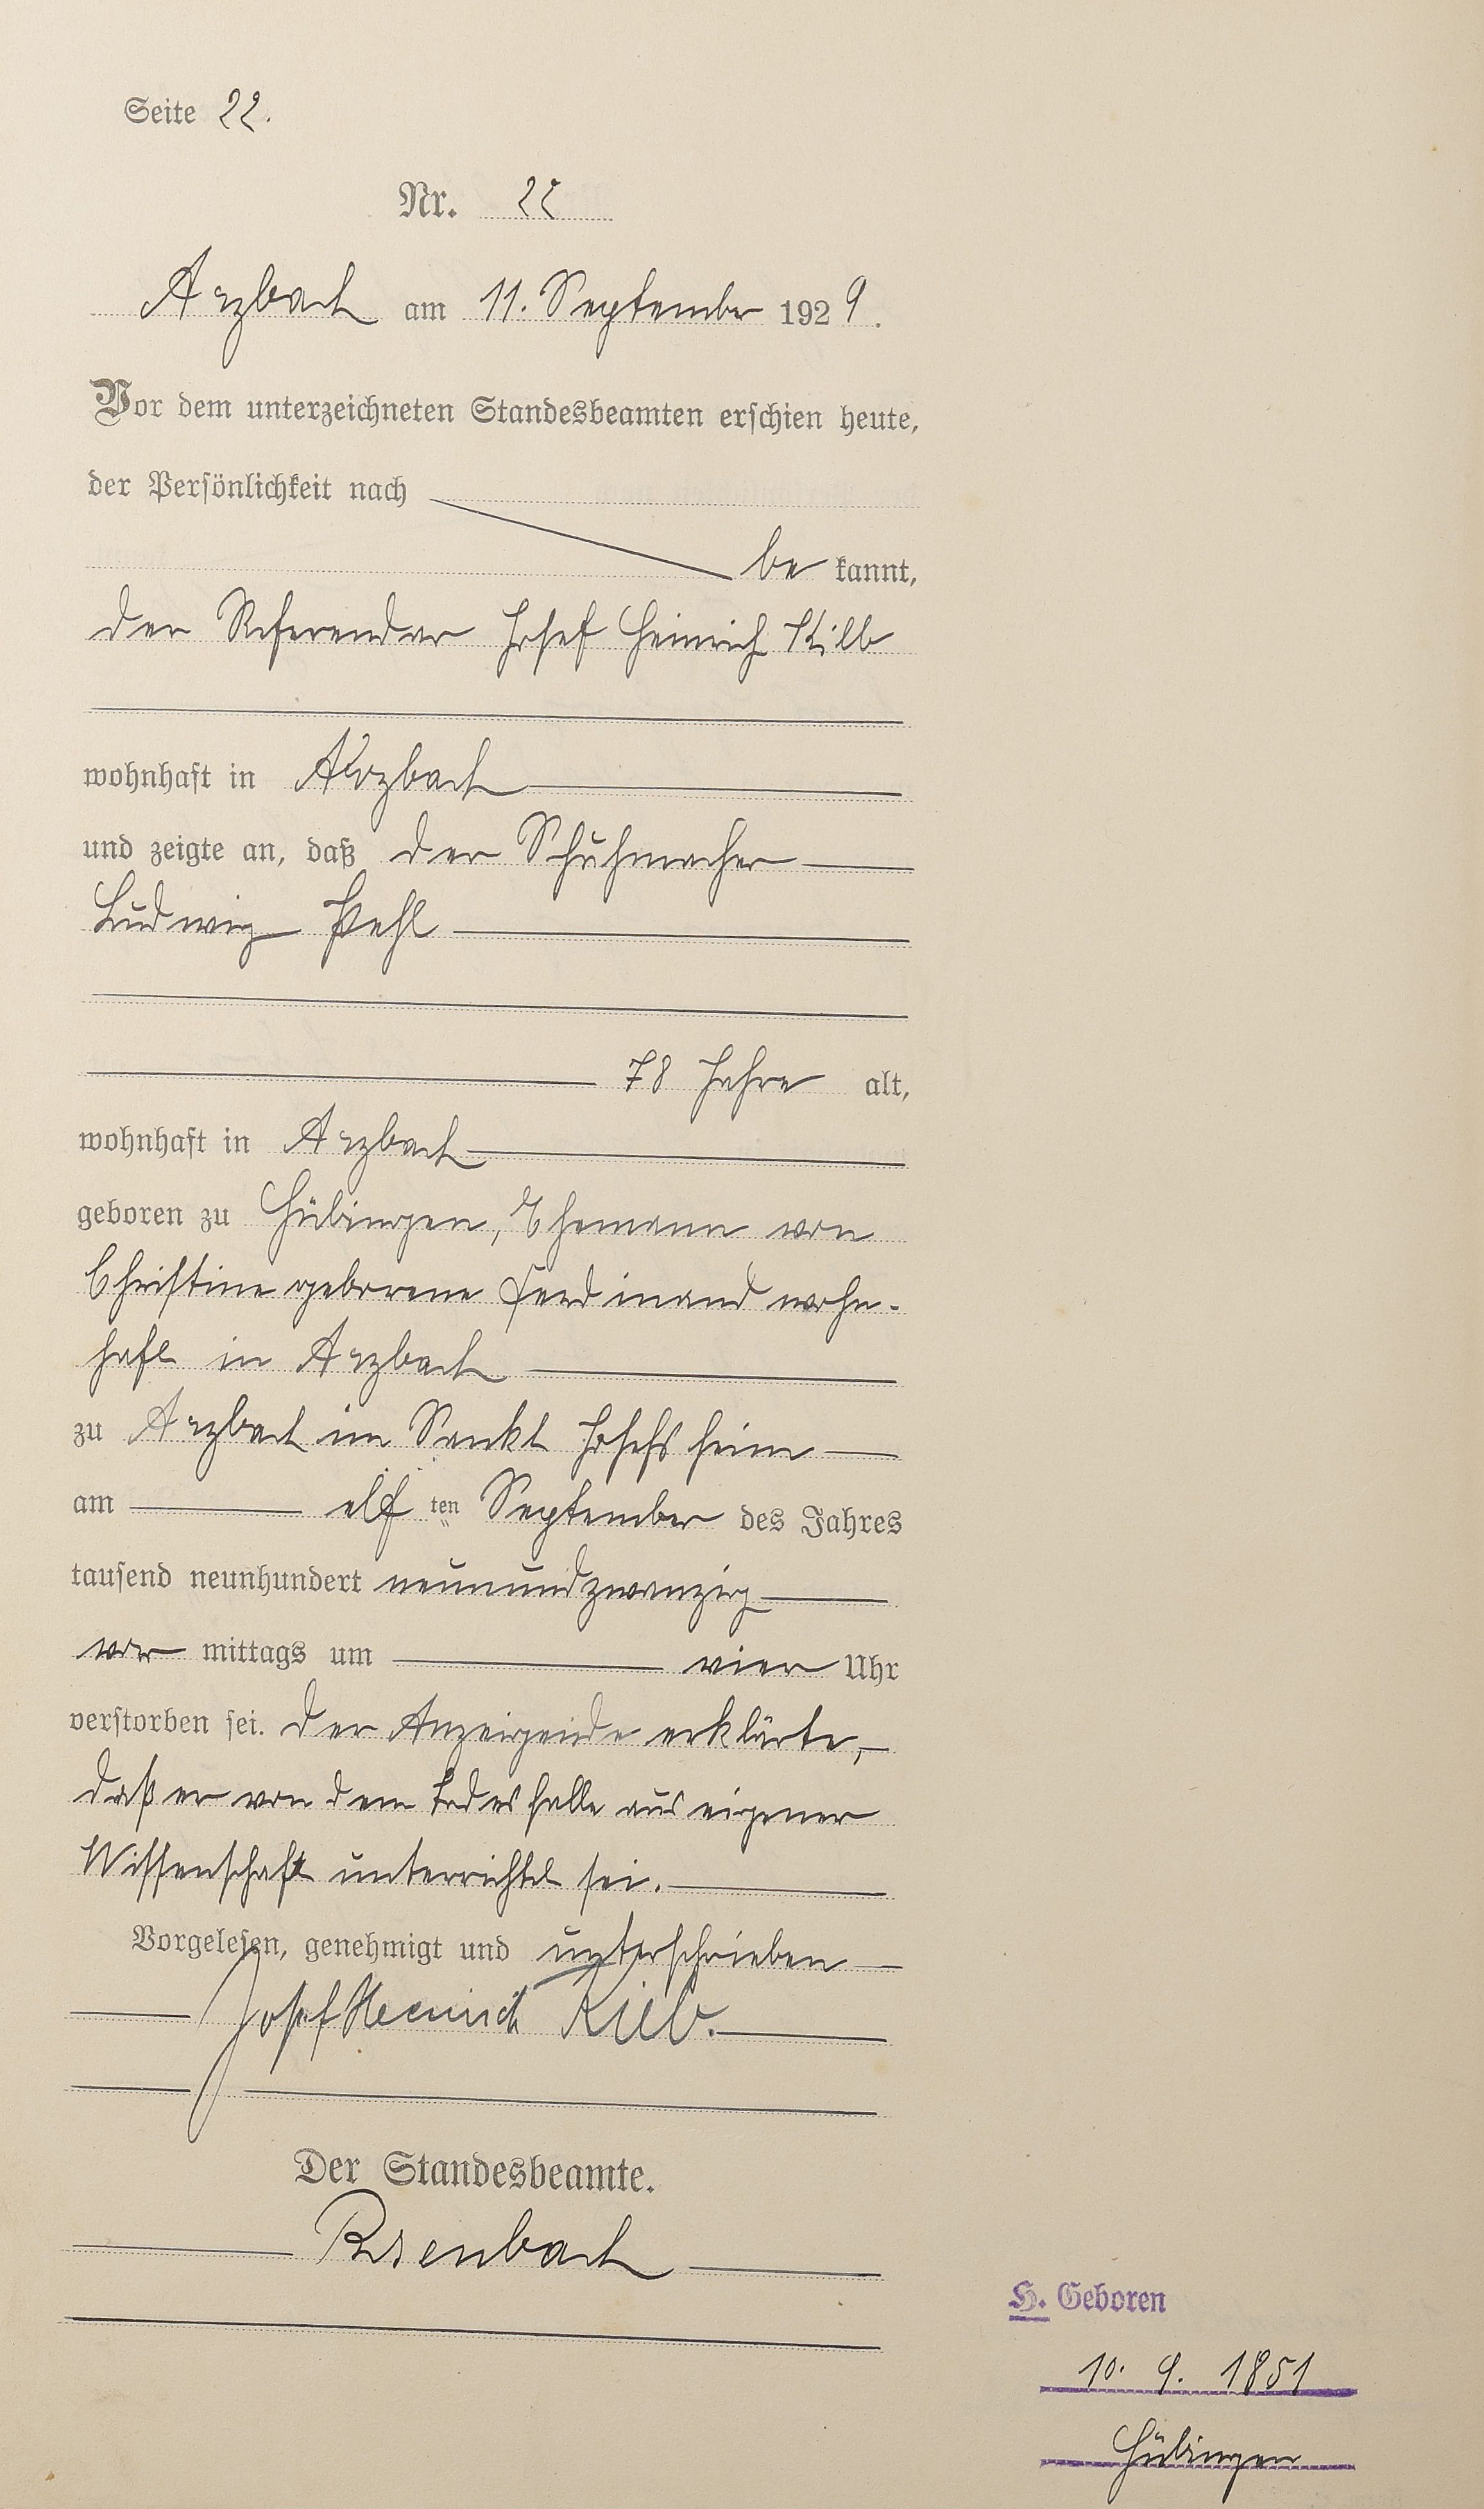 Seite 22.
Nr. 22
Arzbach am 11. September 1929.
Vor dem unterzeichneten Standesbeamten erschien heute,
der Persönlichkeit nach
be kannt,
der Referendar Josef Heinrich Kilb
wohnhaft in Arzbach
und zeigte an, daß der Schuhmacher
Ludwig Pehl
78 Jahre alt,
wohnhaft in Arzbach
geboren zu Hübingen, Ehemann von
Christine geborene Ferdinand wohn-
haft in Arzbach
zu Arzbach im Sankt Josefsheim
am elf ten September des Jahres
tausend neunhundert neunundzwanzig
vor mittags um vier Uhr
verstorben sei. Der Anzeigende erklärte,
daß er von dem Todesfalle aus eigener
Wissenschaft unterrichtet sei.
Vorgelesen, genehmigt und unterschrieben
Josef Heinrich Kilb.
Der Standesbeamte.
H. Geboren
10. 9. 1851
Hübingen